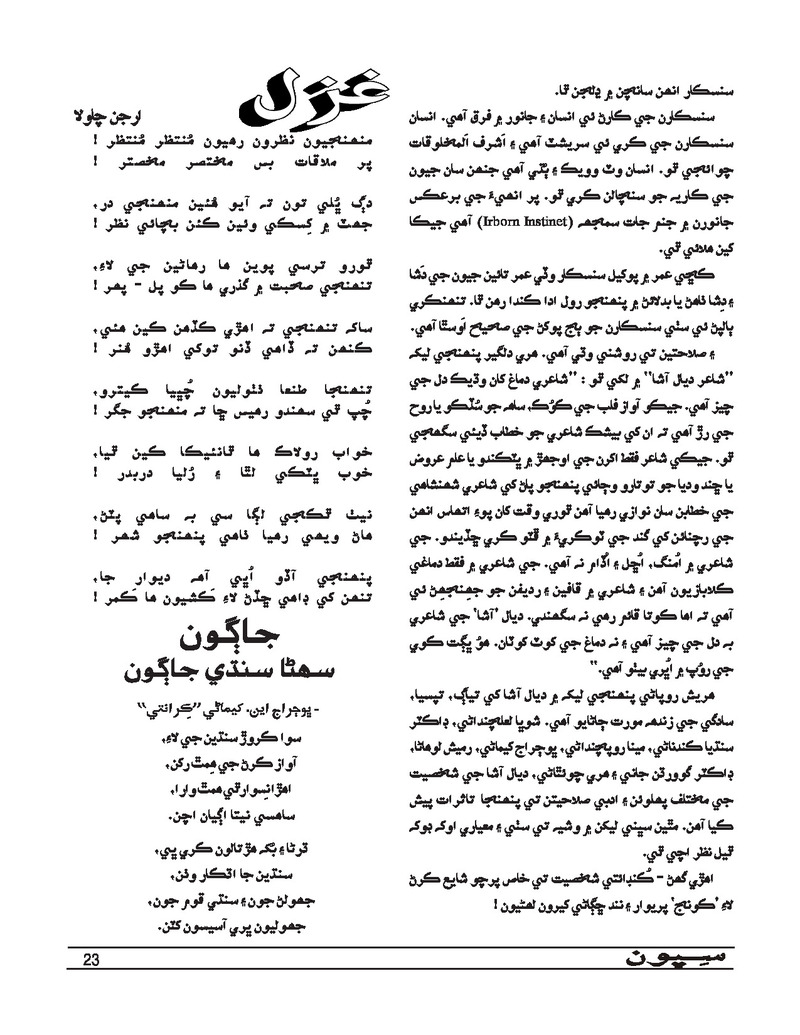 سنسڪار انھن سانچن ۾ ڍلجن ٿا.
سنسڪارن جي ڪارڻ ئي انسان ۽ جانور ۾ فرق آهي. انسان
سنسڪارن جي ڪري ئي سريشٽ آهي ۽ اَشرف المخلوقات
چوائجي ٿو. انسان وٽ وويڪ ۽ ٻُڌي آهي جنھن سان جيون
جي ڪاريہ جو سنچالن ڪري ٿو. پر انھيءَ جي برعڪس
جانورن ۾ جنم جات سمجھہ (Irborn Instinet) آهي جيڪا
کين هلائي ٿي.
ڪچي عمر ۾ پوکيل سنسڪار وڏي عمر تائين جيون جي دَشا
۽ دِشا ٺاهڻ يا بدلائڻ ۾ پنھنجو رول ادا ڪندا رهن ٿا. تنھنڪري
ٻالپڻ ئي سٺي سنسڪارن جو ٻج پوکڻ جي صحيح اَوسٿا آهي.
۽ صلاحتين تي روشني وڌي آهي. هري دلگير پنھنجي ليکہ
”شاعر ديال آشا“ ۾ لکي ٿو : ”شاعري دماغ کان وڌيڪ دل جي
چيز آهي. جيڪو آواز قلب جي ڪُوڪ، ساھہ جو سُڏڪو يا روح
جي رڙ آهي تہ ان کي بيشڪ شاعري جو خطاب ڏيئي سگھجي
ٿو. جيڪي شاعر فقط اکرن جي اوجھڙ ۾ ڀٽڪندو يا علم عروض
يا ڇند وديا جو توتارو وڄائي پنھنجو پاڻ کي شاعري شھنشاهي
جي خطابن سان نوازي رهيا آهن ٿوري وقت کان پوءِ اتھاس انھن
جي رچنائن کي گند جي ٽوڪريءَ ۾ ڦٽو ڪري ڇڏيندو. جي
شاعري ۾ اُمنگ، اُڇل ۽ اُڏام نہ آهي. جي شاعري ۾ فقط دماغي
ڪلابازيون آهن ۽ شاعري ۾ قافين ۽ رديفن جو جھنجھڻ ئي
آهي تہ اها ڪوتا قائم رهي نہ سگھندي. ديال ’آشا‘ جي شاعري
بہ دل جي چيز آهي ۽ نہ دماغ جي ڪوٽ ڪوٽان. هوُ ڀڳت ڪوي
جي روُپ ۾ اُڀري بيٺو آهي.“
هريش روپاڻي پنھنجي ليکہ ۾ ديال آشا کي تياڳ، تپسيا،
سادگي جي زندھہ مورت ڄاڻايو آهي. شوڀا لعلچنداڻي، ڊاڪٽر
سنڌيا ڪندناڻي، مينا روپچنداڻي، ڀوڄراج کيماڻي، رميش لوھاڻا،
ڊاڪٽر گوورڌن جاني ۽ هري چوئٿاڻي، ديال آشا جي شخصيت
جي مختلف پھلوئن ۽ ادبي صلاحيتن تي پنھنجا تاثرات پيش
ڪيا آهن. مٿين سڀني ليکن ۾ وشيہ تي سٺي ۽ معياري اوکہ ڊوکہ
ٿيل نظر اچي ٿي.
اهڙي گھڻ - ڪُنڊائتي شخصيت تي خاص پرچو شايع ڪرڻ
لاءِ ’ڪونج‘ پريوار ۽ نند ڇڳاڻي کيرون لھڻيون !
غزل
ارجن چاولا
منھنجيون نظرون رهيون مُنتظر مُنتظر !
پر ملاقات بس مختصر مختصر !
دڳ ڀُلي تون تہ آيو هُئين منھنجي در،
جھٽ ۾ کِسڪي وئين ڪئن بچائي نظر !
ٿورو ترسي پوين ها رهاڻين جي لاءِ،
تنھنجي صحبت ۾ گذري ها ڪو پل - پھر !
ساکہ تنھنجي تہ اهڙي ڪڏهن ڪين هئي،
ڪنھن تہ ڏاهي ڏنو توکي اهڙو هُنر !
تنھنجا طنعا ٺٺوليون چُڀيا ڪيترو،
چُپ ٿي سھندو رهيس ڇا تہ منھنجو جگر !
خواب رولاڪ ها ٿانئيڪا ڪين ٿيا،
خوب ڀٽڪي لٿا ۽ رُليا دربدر !
نيٺ ٿڪجي لڳا سي بہ ساهي پٽڻ،
هاڻ ويھي رهيا ٺاهي پنھنجو شھر !
پنھنجي آڏو اُڀي آھہ ديوار جا،
تنھن کي ڊاهي ڇڏڻ لاءِ ڪَشيون ها ڪَمر !
جاڳون
سھڻا سنڌي جاڳون
- ڀوڄراج اين. کيماڻي ”ڪِرانتي“
سوا ڪروڙ سنڌين جي لاءِ،
آواز ڪرڻ جي هِمٿ رکن،
اهڙا نِسوارٿي همٿ وارا،
ساهسي نيتا اڳيان اچن.
ڌرڻا ۽ بُکہ هڙتالون ڪري ڀي،
سنڌين جا اڌڪار وٺن،
جھولڻ جون ۽ سنڌي قوم جون،
جھوليون ڀري آسيسون کٽن.
23
سِپون